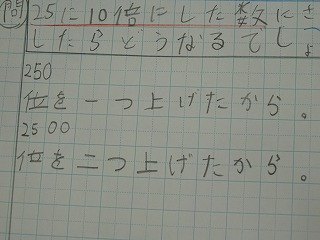 問 25に10倍にした数にさ
したらどうなるでしょ
250
位を一つ上げたから。
2500
位を二つ上げたから。